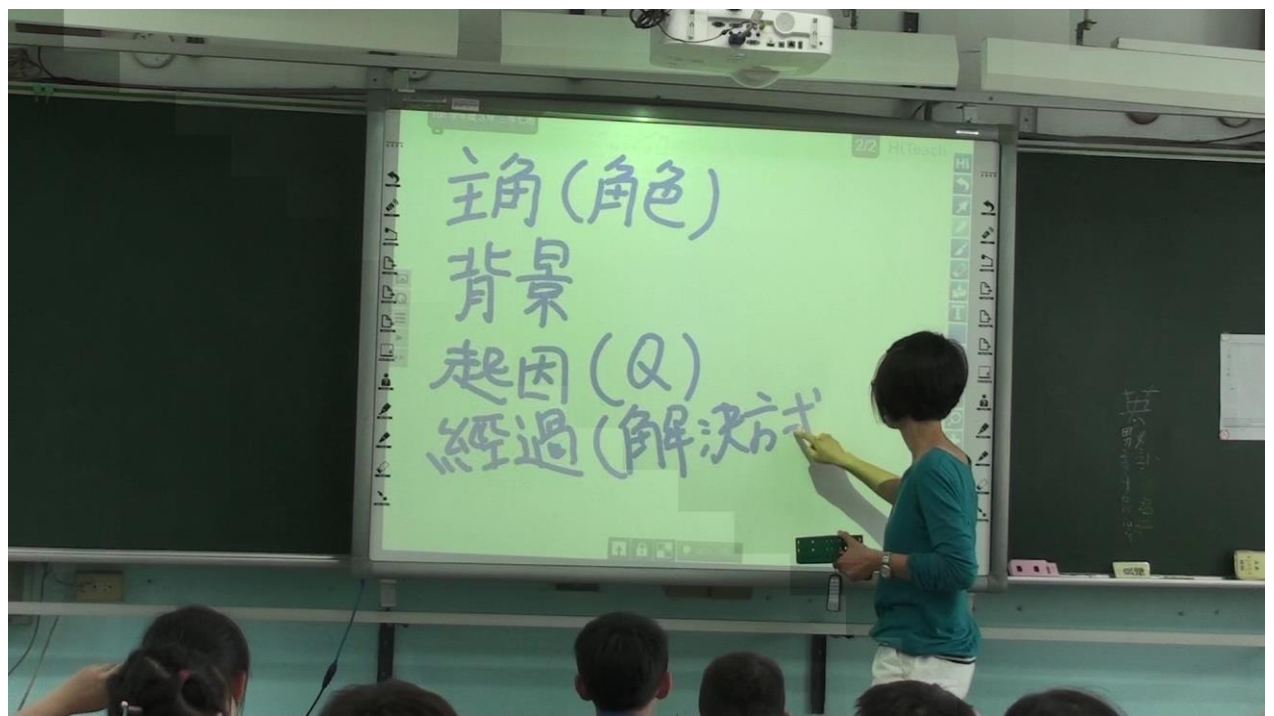 2/2 HiTeach
Hi
主角(角色)
背景
起因(Q)
經過(解決方式
T